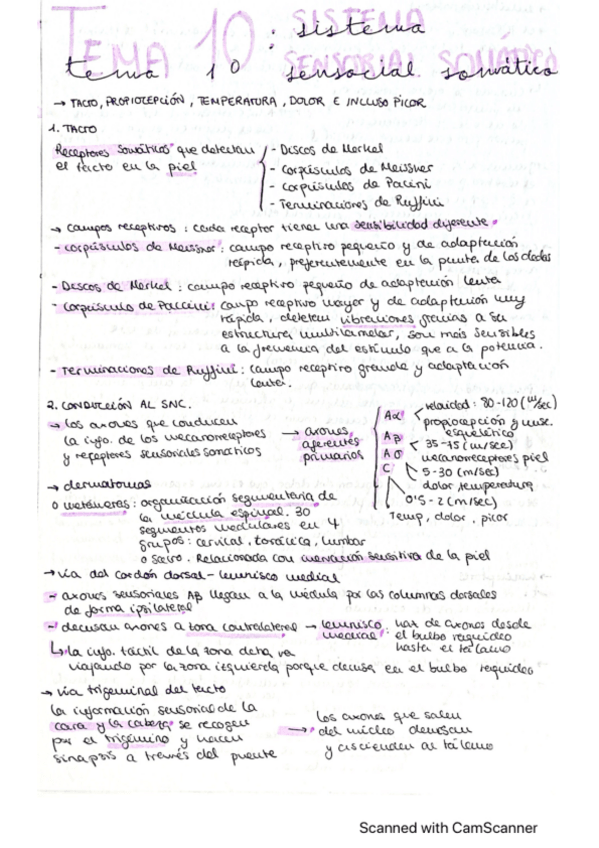 TEMA 10: SISTEMA SENSORIAL SOMÁTICO
: sistema
tema 10 sensocial somático
→ TACTO, PROPIOCEPCIÓN, TEMPERATURA, DOLOR E INCLUSO PICOR
1. TACTO
Receptores somáticos que detectan el tacto en la piel
- Discos de Merkel
- Corpúsculos de Meissner
- Corpúsculos de Pacini
- Terminaciones de Ruffini
→ Campos receptivos: cada receptor tiene una sensibilidad diferente.
- Corpúsculos de Meissner: campo receptivo pequeño y de adaptación
rápida, preferentemente en la punta de los dedos
- Discos de Merkel: campo receptivo pequeño de adaptación lenta
- Corpúsculo de Paccini: campo receptivo mayor y de adaptación muy
rápida, detectan vibraciones gracias a su
estructura multilamelar, son más sensibles
a la frecuencia del estímulo que a la potencia.
- Terminaciones de Ruffini: campo receptivo grande y adaptación
lenta.
2. CONDUCCIÓN AL SNC.
→ los axones que conducen
la info. de los mecanorreceptores
y receptores sensoriales somáticos
→ axones
aferentes
primarios
Aα velocidad: 80-120 (m/sec)
propiocepción y musc.
esquelético
Aβ 35-75 (m/sec)
mecanorreceptores piel
Aδ 5-30 (m/sec)
dolor, temperatura
C 0'5-2 (m/sec)
Temp, dolor, picor
→ dermatomas
o metámeras: organización segmentaria de
la médula espinal. 30
segmentos medulares en 4
grupos: cervical, torácica, lumbar
o sacro. Relacionada con inervación sensitiva de la piel
→ vía del cordón dorsal - lemnisco medial
- axones sensoriales Aβ llegan a la médula por las columnas dorsales
de forma ipsilateral
- decusan axones a zona contralateral → lemnisco medial: haz de axones desde
el bulbo raquídeo
hasta el tálamo
↳ la info. táctil de la zona dcha, va
viajando por la zona izquierda porque decusa en el bulbo raquídeo
→ vía trigeminal del tacto
la información sensorial de la
cara y la cabeza se recogen
por el trigémino y hacen
sinapsis a través del puente
→ los axones que salen
del núcleo decusan
y ascienden al tálamo
Scanned with CamScanner